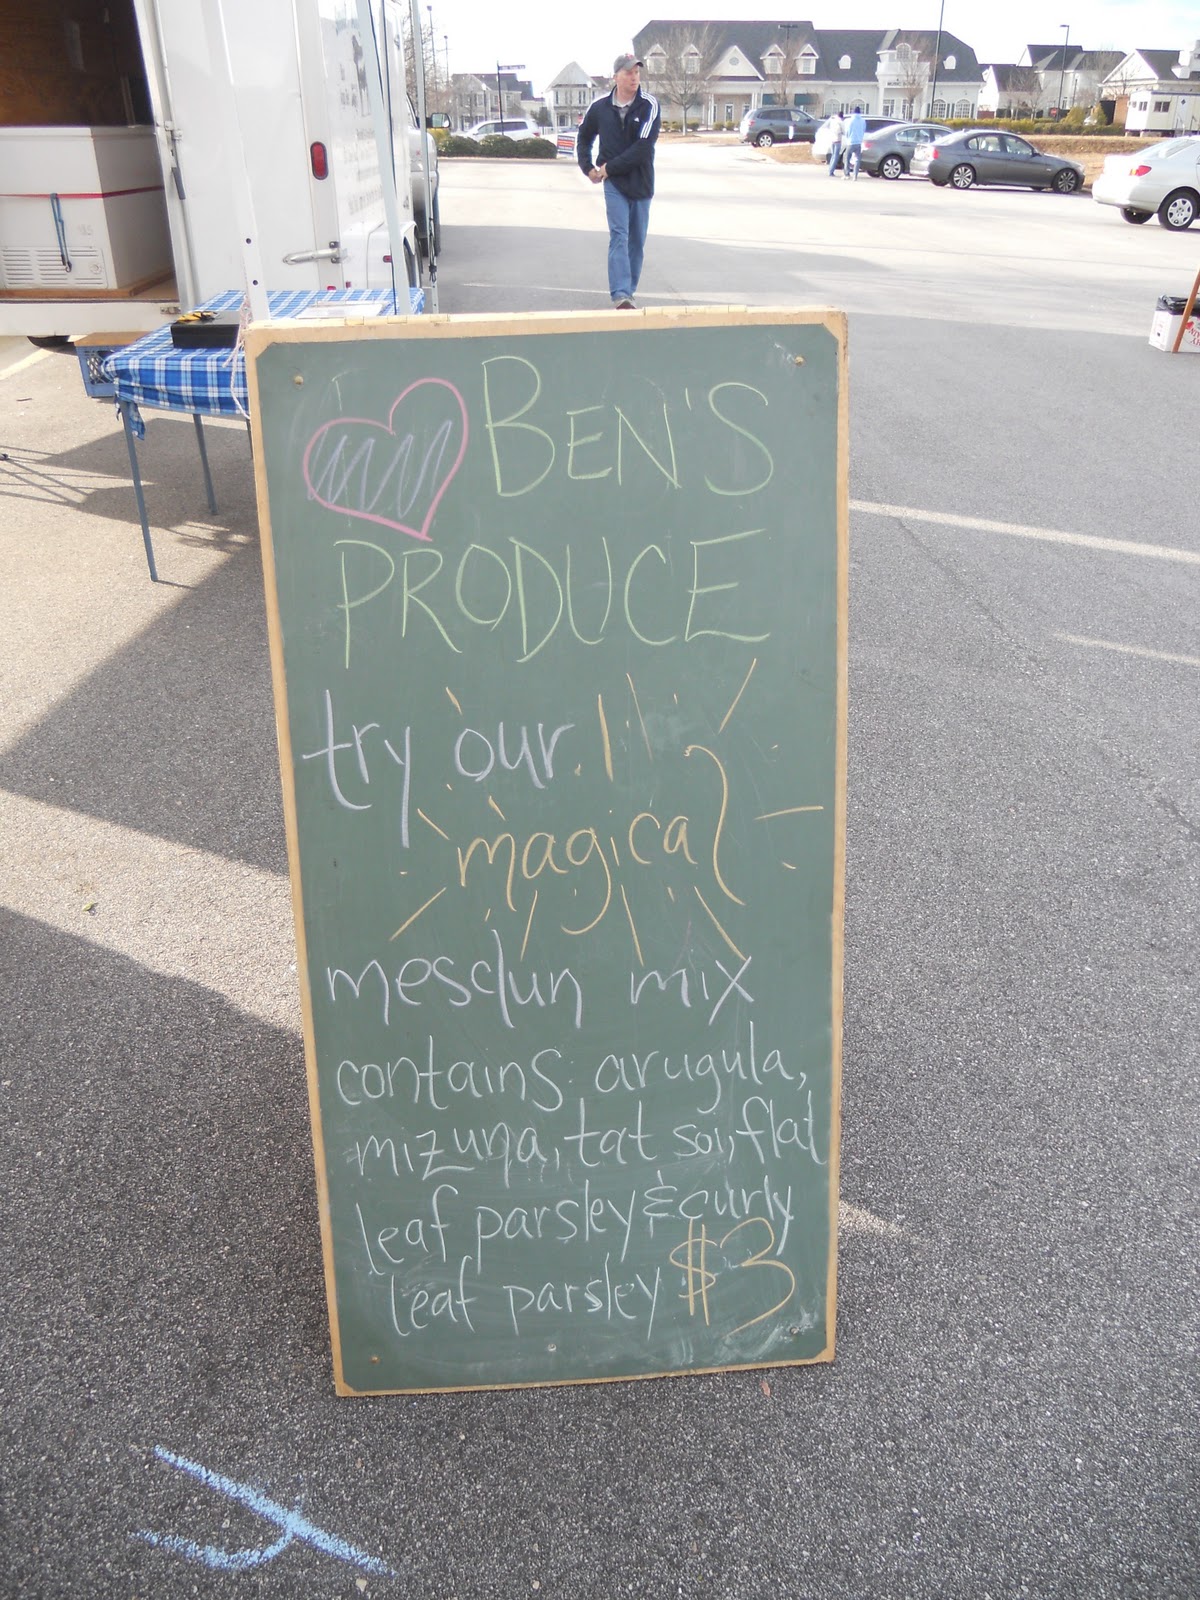 BEN'S
PRODUCE
try our
magical
mesclun mix
contains: arugula,
mizuna, tat soi, flat
leaf parsley & curly
leaf parsley $3